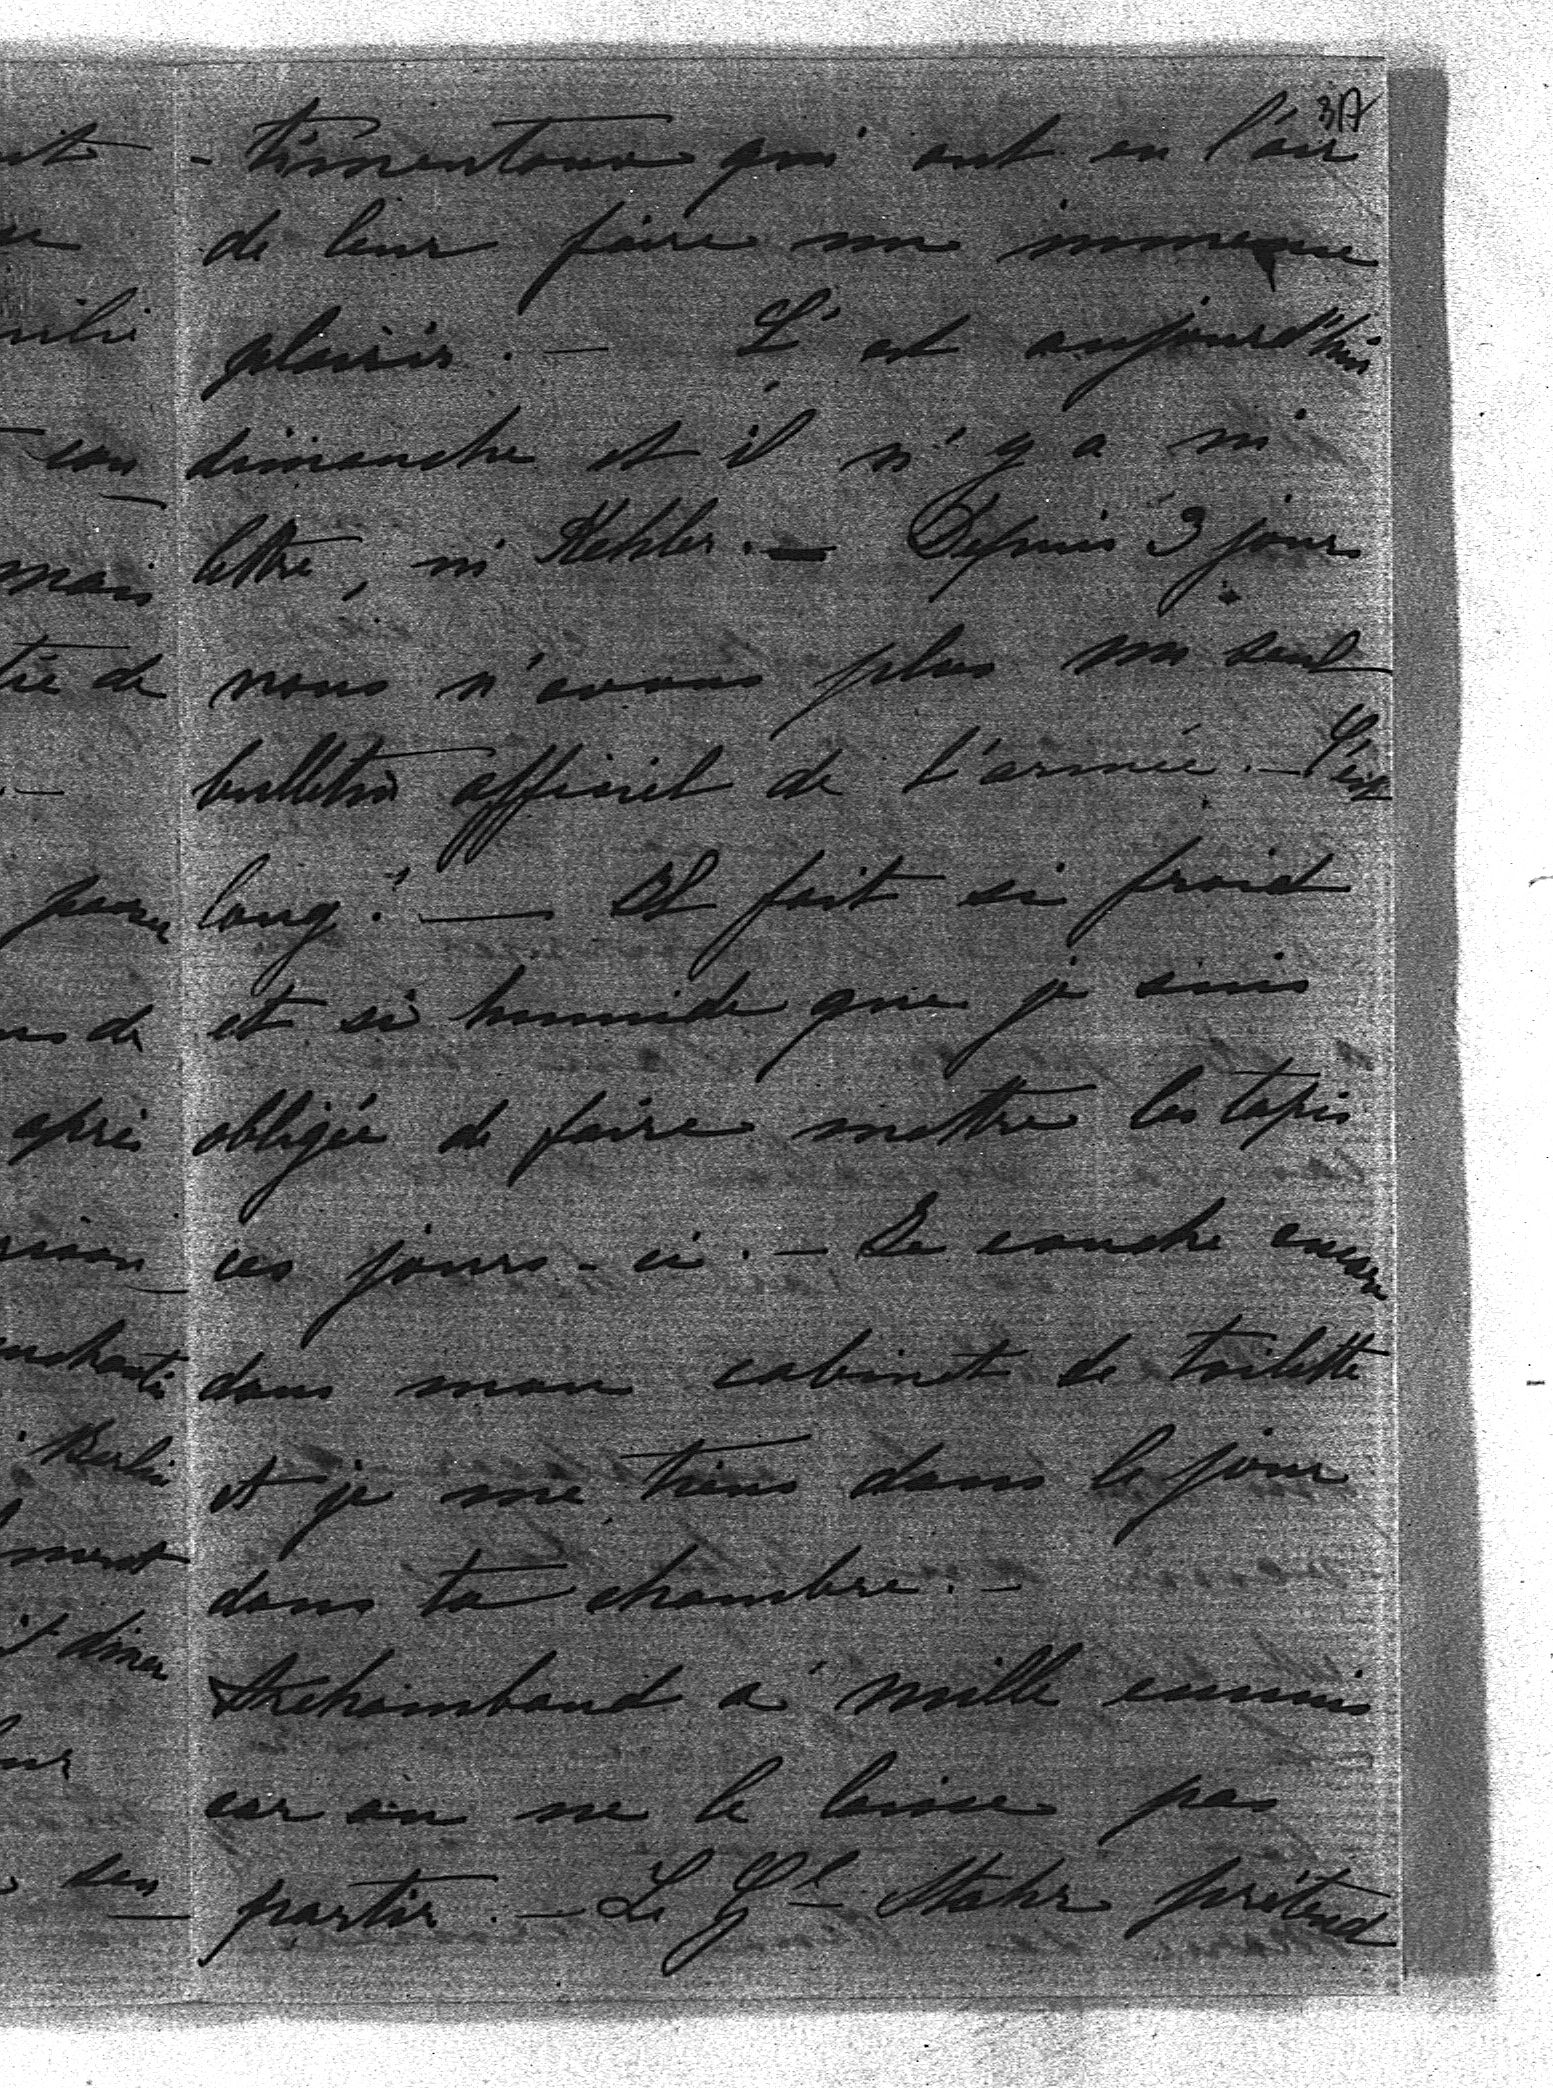 3A
- timentaux qui ont eu l'air
de leur faire un immense
plaisir. — C'est aujourd'hui
dimanche et il n'y a ni
lettre, ni Kehler. — Depuis 3 jours
nous n'avons plus un seul
bulletin officiel de l'armée. — C'est
long! — Il fait si froid
et si humide que je suis
obligée de faire mettre les tapis
ces jours-ci. — Je couche encore
dans mon cabinet de toilette
et je me tiens dans le jour
dans ta chambre. —
a mille ennuis
car on ne le laisse pas
partir. — Le Gl prétend
mais
tié de
après
Berlin
dîner